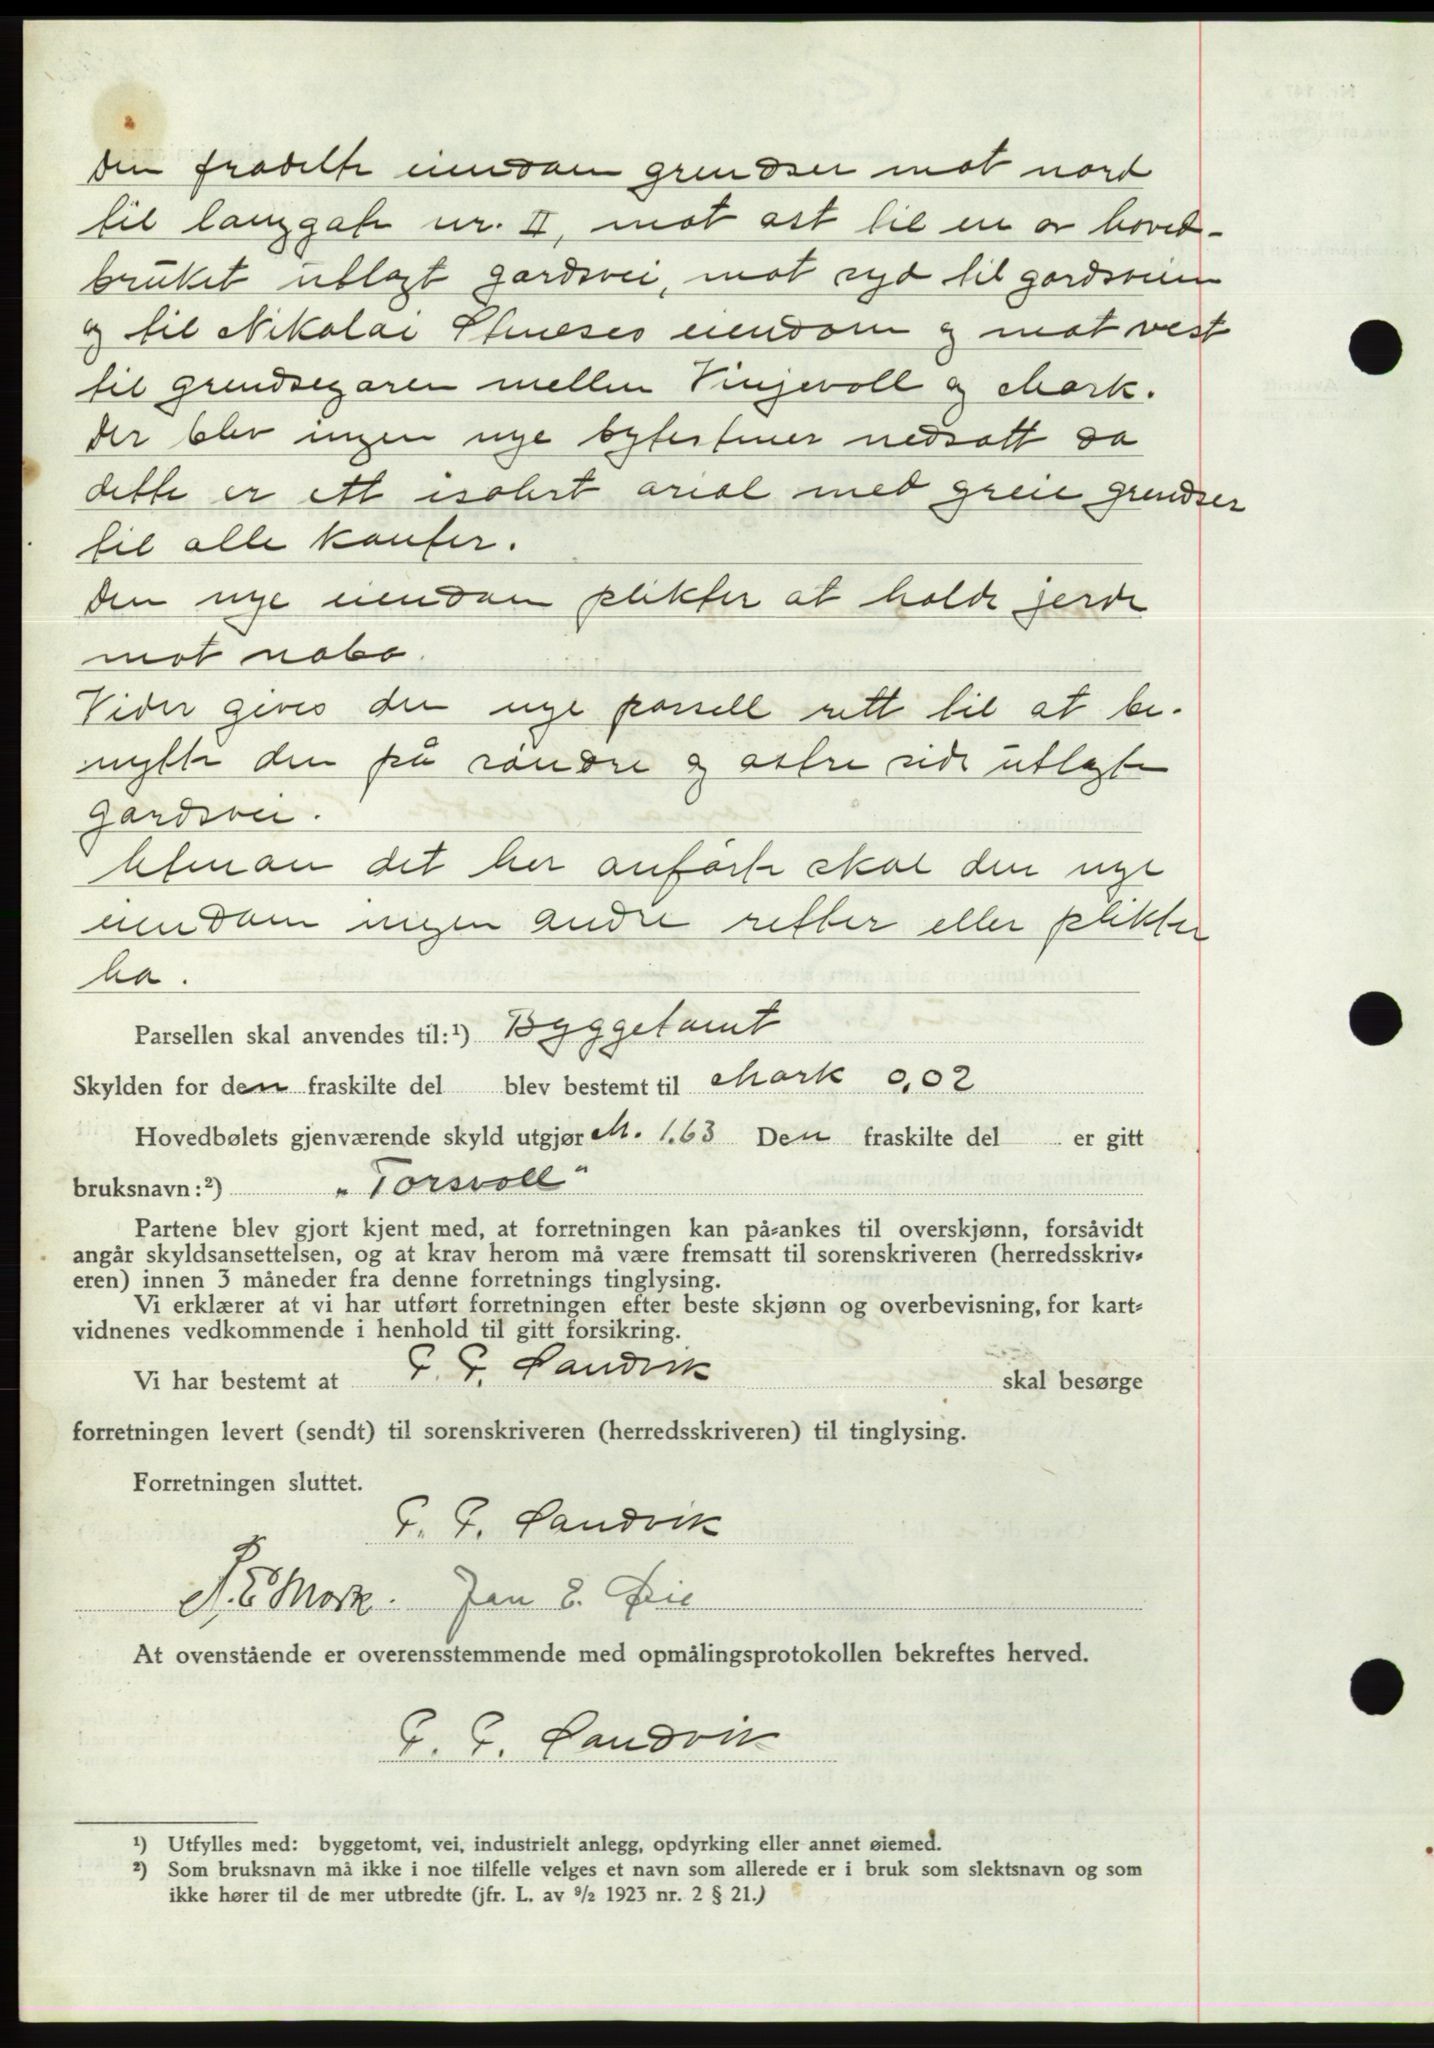 Den fradelte eiendom grendser mot nord
til langgate nr. II, mot øst til en av hoved-
bruket utlagt gardsvei, mot syd til gardsveien
og til Nikolai Stueses eiendom og mot vest
til grendsegaren mellem Vinjevoll og Mork.
Der blev ingen nye bytestener nedsatt da
dette er ett isolert arial med greie grendser
til alle kanter.
Den nye eiendom plikter at holde jerde
mot nabo.
Vider gives den nye parsell rett til at be-
nytte den på söndre og østre side utlagte
gardsvei.
Utenom det her anförte skal den nye
eiendom ingen andre retter eller plikter
ha.
Parsellen skal anvendes til:¹) Byggetomt
Skylden for den fraskilte del blev bestemt til Mark 0,02
Hovedbølets gjenværende skyld utgjør M. 1.63 Den fraskilte del er gitt
bruksnavn:²) „Torsvoll"
Partene blev gjort kjent med, at forretningen kan på-ankes til overskjønn, forsåvidt
angår skyldsansettelsen, og at krav herom må være fremsatt til sorenskriveren (herredsskriv-
eren) innen 3 måneder fra denne forretnings tinglysing.
Vi erklærer at vi har utført forretningen efter beste skjønn og overbevisning, for kart-
vidnenes vedkommende i henhold til gitt forsikring.
Vi har bestemt at P. P. Sandvik skal besørge
forretningen levert (sendt) til sorenskriveren (herredsskriveren) til tinglysing.
Forretningen sluttet.
P. P. Sandvik
P. E Mork. Jan E. Øie
At ovenstående er overensstemmende med opmålingsprotokollen bekreftes herved.
P. P. Sandvik
¹) Utfylles med: byggetomt, vei, industrielt anlegg, opdyrking eller annet øiemed.
²) Som bruksnavn må ikke i noe tilfelle velges et navn som allerede er i bruk som slektsnavn og som
ikke hører til de mer utbredte (jfr. L. av 9/2 1923 nr. 2 § 21.)